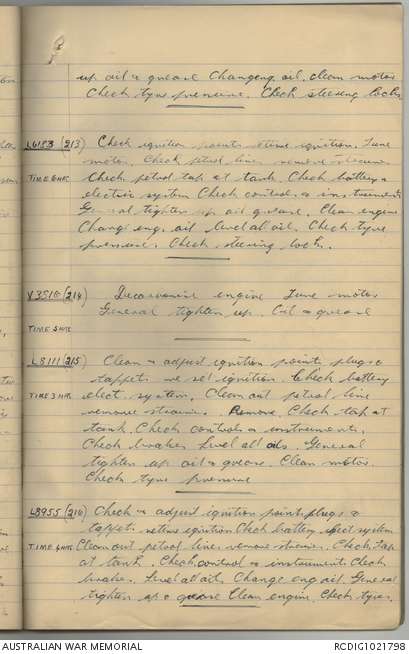 up oil & grease Changeng oil. clean motor
Check tyre pressure. Check steering locks
L6183 (213) Check ignition points retime ignition. Tune
motor. Check petrol line remove strainer
TIME 6 HRS. Check petrol tap at tank. Check battery &
electric system Check controls & instruments
General tighten up oil grease. Clean engine
Change eng. oil level all oil. Check tyre
pressure. Check steering lock.
V3516 (214) Decarbonise engine Tune motor
General tighten up. Oil & grease
TIME HRS
L8111 (215) Clean & adjust ignition points, plugs &
tappets re set ignition. Check battery
TIME 3 HRS elect. system. Clean out petrol line
remove strainer. Remove. Check tap at
tank Check controls & instruments,
Check brakes Level all oils. General
tighten up oil & grease. Clean motor.
Check tyre pressure
L8955 (216) Check & adjust ignition point plugs &
tappets retime ignition Check battery elect system
TIME HRS Clean out petrol line remove strainer. Check tap
at tank. Check control & instrument Check
brakes. Level all oil. Change eng oil. General
tighten up & grease Clean engine. Check tyres.
AUSTRALIAN WAR MEMORIAL
RCDIG1021798